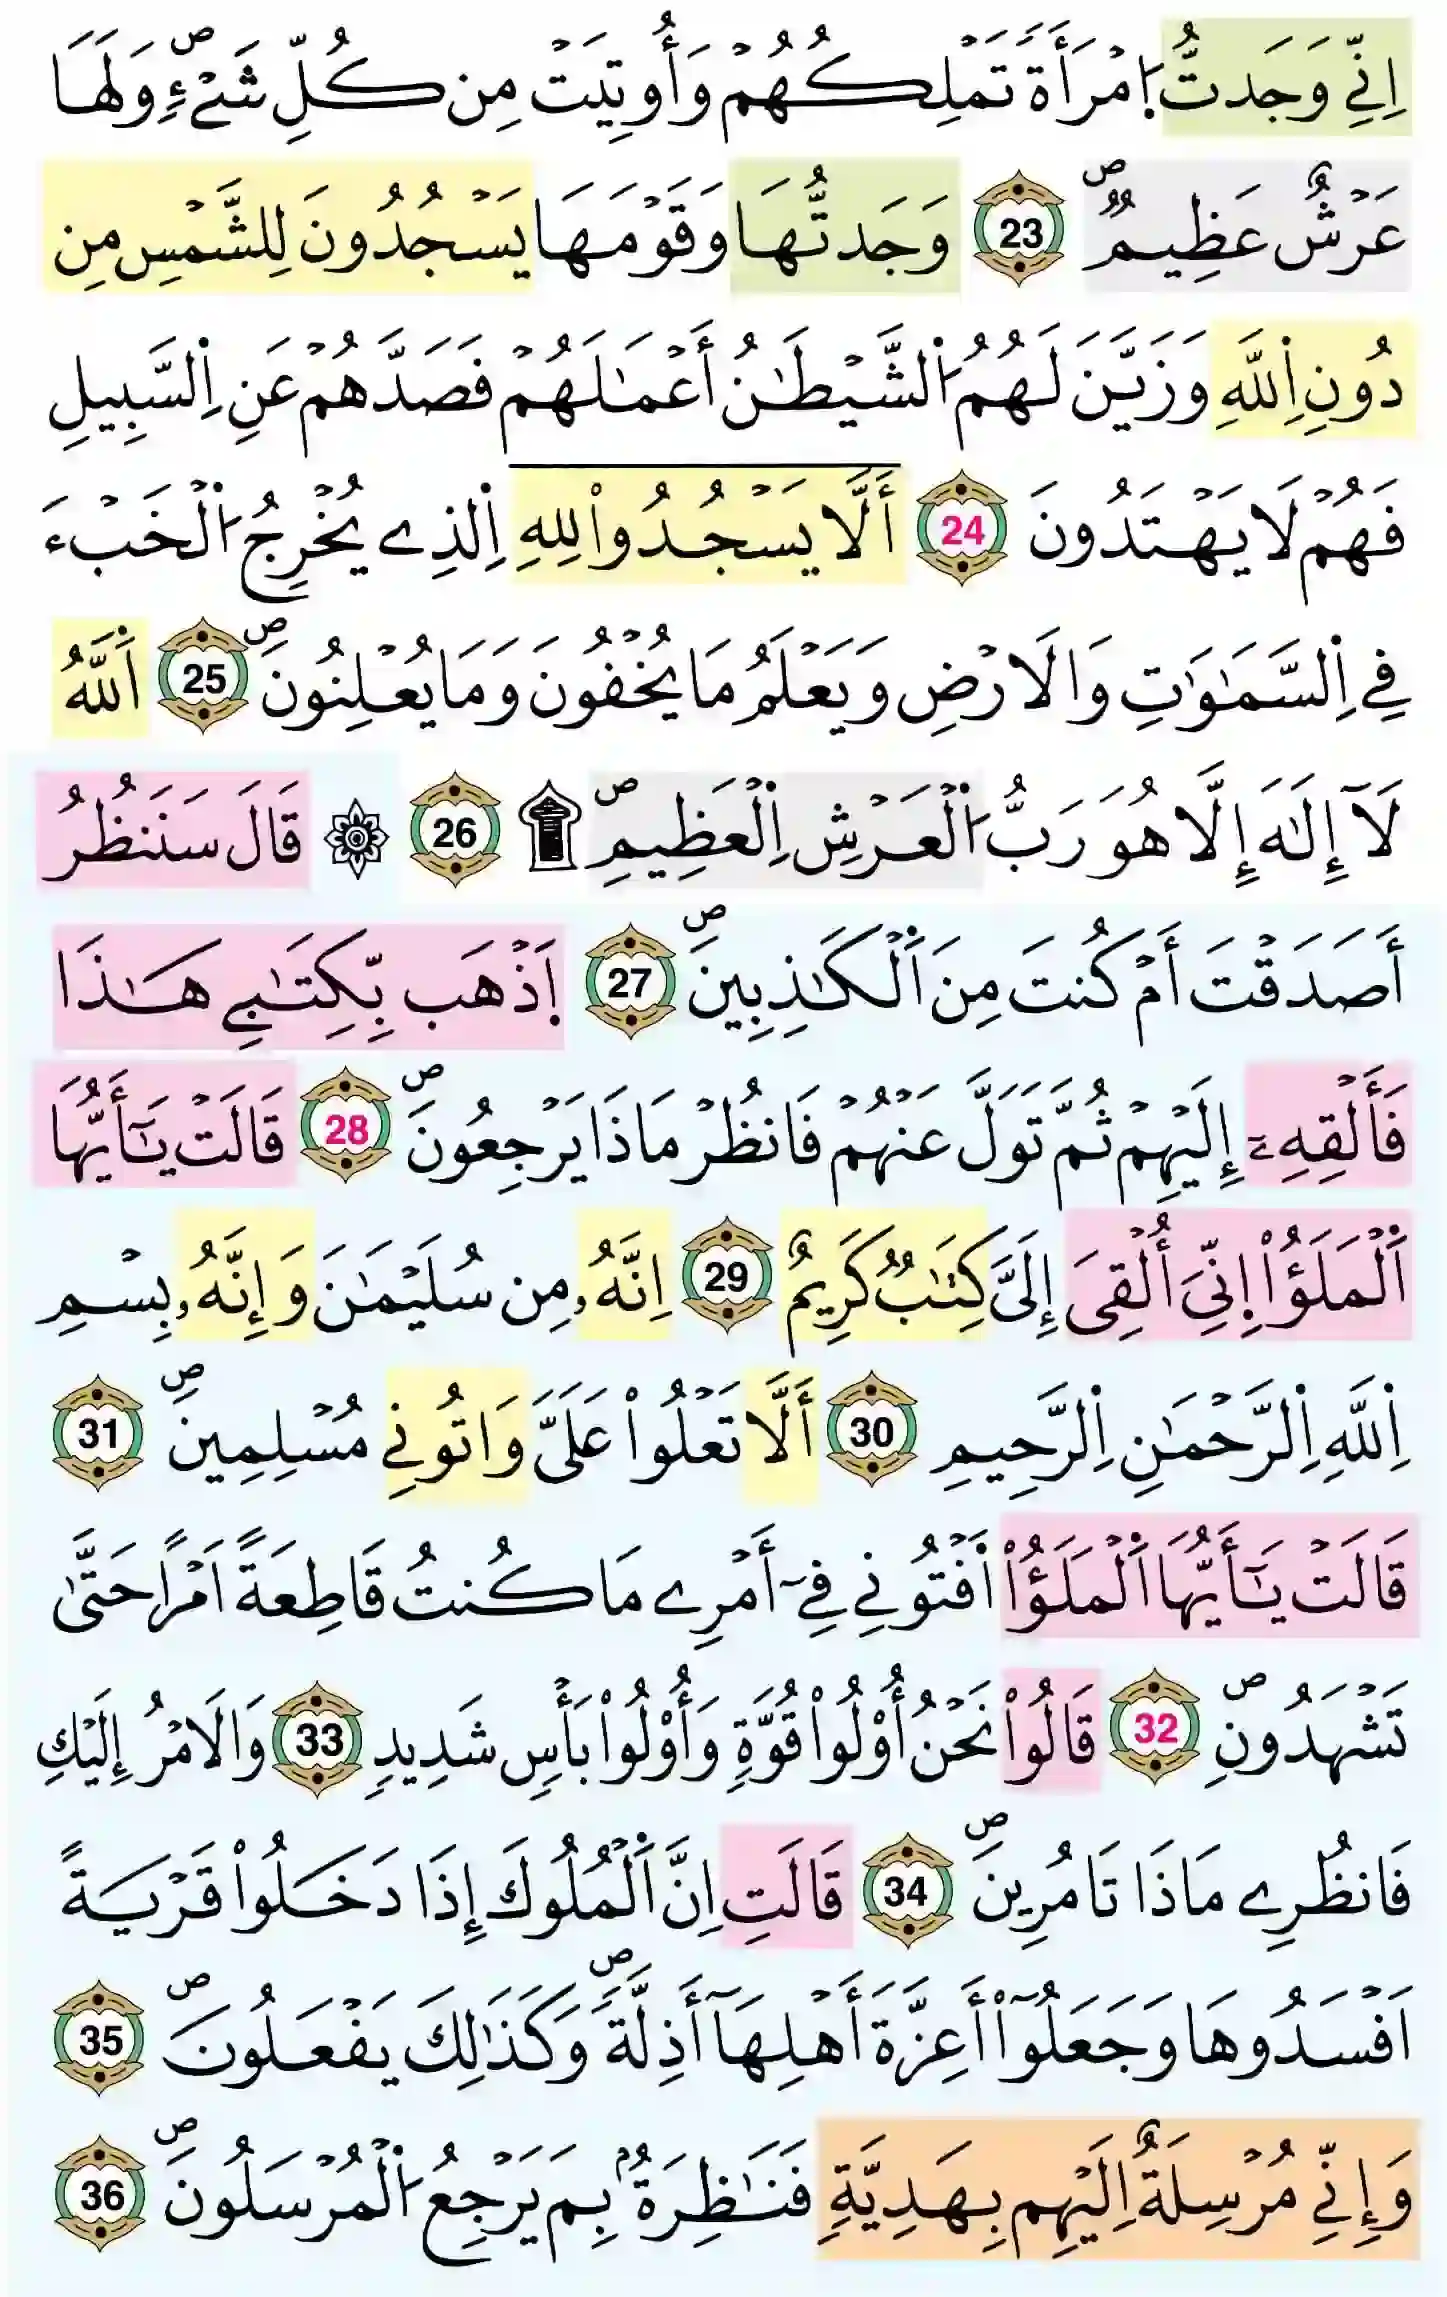 اِنِّے وَجَدتُّ اُ۪مْرَأَةٗ تَمْلِكُهُمْ وَأُوتِيَتْ مِن كُلِّ شَےْءٖۖ وَلَهَا
عَرْشٌ عَظِيمٞۖ 23 وَجَدتُّهَا وَقَوْمَهَا يَسْجُدُونَ لِلشَّمْسِ مِن
دُونِ اِ۬للَّهِ وَزَيَّنَ لَهُمُ اُ۬لشَّيْطَٰنُ أَعْمَٰلَهُمْ فَصَدَّهُمْ عَنِ اِ۬لسَّبِيلِ
فَهُمْ لَا يَهْتَدُونَ 24 أَلَّا يَسْجُدُواْ لِلهِ اِ۬لذِے يُخْرِجُ اُ۬لْخَبْءَ
فِے اِ۬لسَّمَٰوَٰتِ وَالَارْضِ وَيَعْلَمُ مَا يُخْفُونَ وَمَا يُعْلِنُونَۖ 25 اَ۬للَّهُ
لَآ إِلَٰهَ إِلَّا هُوَ رَبُّ اُ۬لْعَرْشِ اِ۬لْعَظِيمِۖ ۩ 26 ۞ قَالَ سَنَنظُرُ
أَصَدَقْتَ أَمْ كُنتَ مِنَ اَ۬لْكَٰذِبِينَۖ 27 اَ۪ذْهَب بِّكِتَٰبِے هَٰذَا
فَأَلْقِهِۦٓ إِلَيْهِمْ ثُمَّ تَوَلَّ عَنْهُمْ فَانظُرْ مَاذَا يَرْجِعُونَۖ 28 قَالَتْ يَٰٓأَيُّهَا
اَ۬لْمَلَؤُاْ اِ۪نِّيَ أُلْقِيَ إِلَيَّ كِتَٰبٞ كَرِيمٌ 29 اِنَّهُۥ مِن سُلَيْمَٰنَ وَإِنَّهُۥ بِسْمِ
اِ۬للَّهِ اِ۬لرَّحْمَٰنِ اِ۬لرَّحِيمِ 30 أَلَّا تَعْلُواْ عَلَيَّ وَاتُونِے مُسْلِمِينَۖ 31
قَالَتْ يَٰٓأَيُّهَا اَ۬لْمَلَؤُاْ اَ۬فْتُونِے فِےٓ أَمْرِے مَا كُنتُ قَاطِعَةً اَمْراً حَتَّىٰ
تَشْهَدُونِۖ 32 قَالُواْ نَحْنُ أُوْلُواْ قُوَّةٖ وَأُوْلُواْ بَأْسٖ شَدِيدٖ 33 وَالَامْرُ إِلَيْكِ
فَانظُرِے مَاذَا تَامُرِينَۖ 34 قَالَتِ اِنَّ اَ۬لْمُلُوكَ إِذَا دَخَلُواْ قَرْيَةً
اَفْسَدُوهَا وَجَعَلُوٓاْ أَعِزَّةَ أَهْلِهَآ أَذِلَّةٗۖ وَكَذَٰلِكَ يَفْعَلُونَۖ 35
وَإِنِّے مُرْسِلَةٌ اِلَيْهِم بِهَدِيَّةٖ فَنَٰظِرَةُۢ بِمَ يَرْجِعُ اُ۬لْمُرْسَلُونَۖ 36